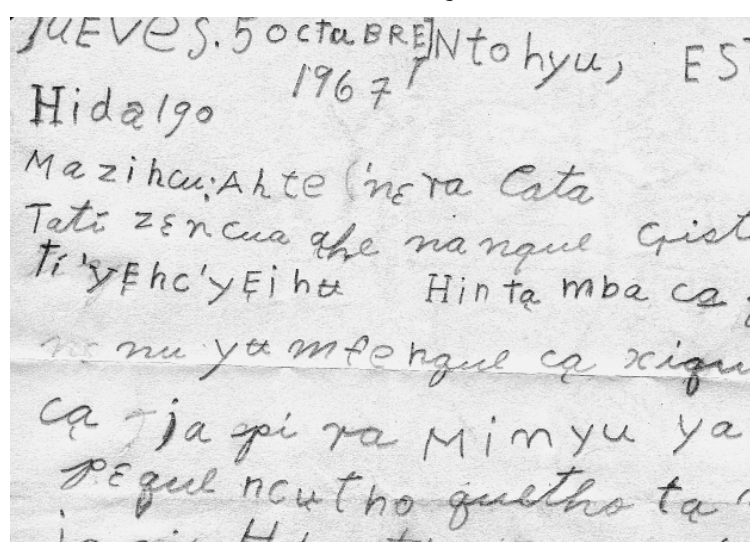 JuEVes. 5 octuBRE Ntohyu, EST
1967
Hidalgo
Mazihcu; Ahte 'nɛ ra Cata
Tati zɛncua qhe nanque Crist
ti 'yEhc'yEi hʉ Hin tą mba cą
nɛ nu yʉ mfenque cą xiqu
cą ja pi ra Minyu ya
pɛque ncʉtho quetho tą